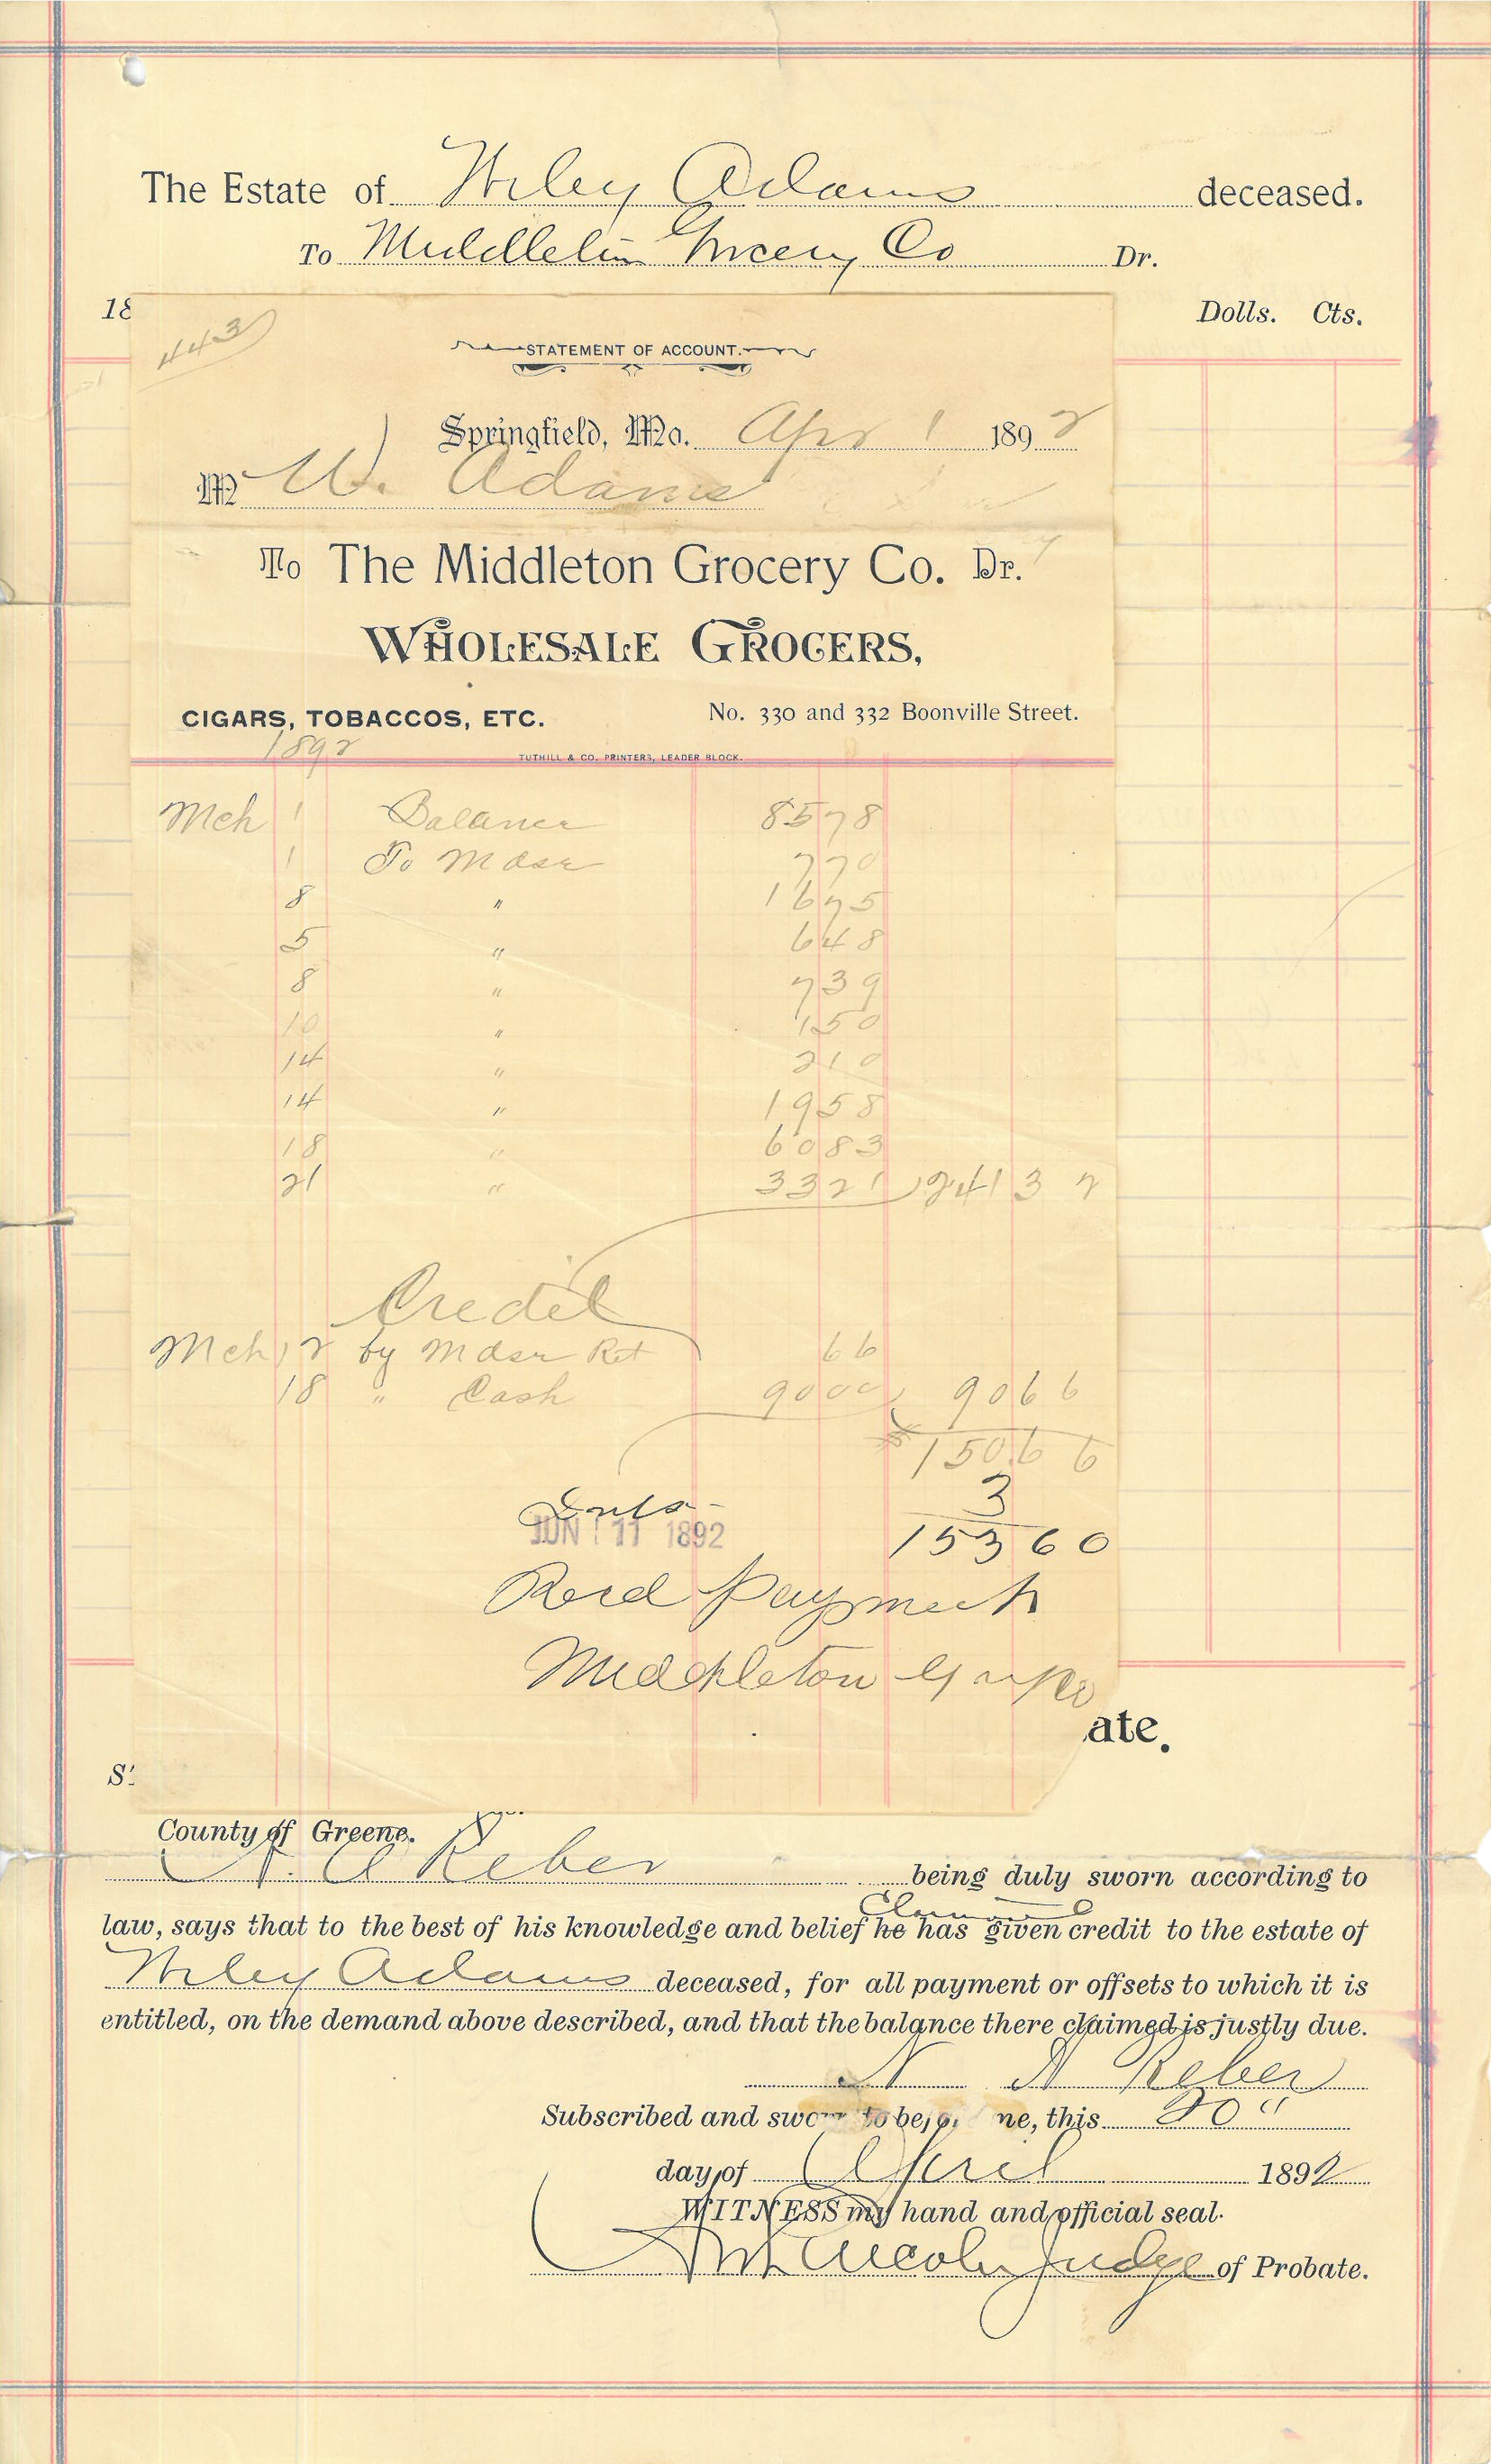 The Estate of Wiley Adams deceased.
To Middleton Grocery Co Dr.
18
Dolls. Cts.
443
STATEMENT OF ACCOUNT.
Springfield, Mo. Apr 1 1892
M W. Adams
To The Middleton Grocery Co. Dr.
WHOLESALE GROCERS,
CIGARS, TOBACCOS, ETC. No. 330 and 332 Boonville Street.
1892
TUTHILL & CO. PRINTERS, LEADER BLOCK.
Mch 1 Balance 85 78
1 To Mdse 7 70
8 " 16 75
5 " 6 48
8 " 7 39
10 " 1 50
14 " 2 10
14 " 19 58
18 " 60 83
21 " 33 21 241 32
Credit
Mch 12 by Mdse Ret 66
18 " Cash 90 00 90 66
$150 66
3
JUN 11 1892 153 60
Recd Payment
Middleton
ate.
S
County of Greene.
A Reber being duly sworn according to
law, says that to the best of his knowledge and belief he has given credit to the estate of
Wiley Adams deceased, for all payment or offsets to which it is
entitled, on the demand above described, and that the balance there claimed is justly due.
A Reber
Subscribed and sworn to before me, this 30"
day of April 1892
WITNESS my hand and official seal.
Judge of Probate.